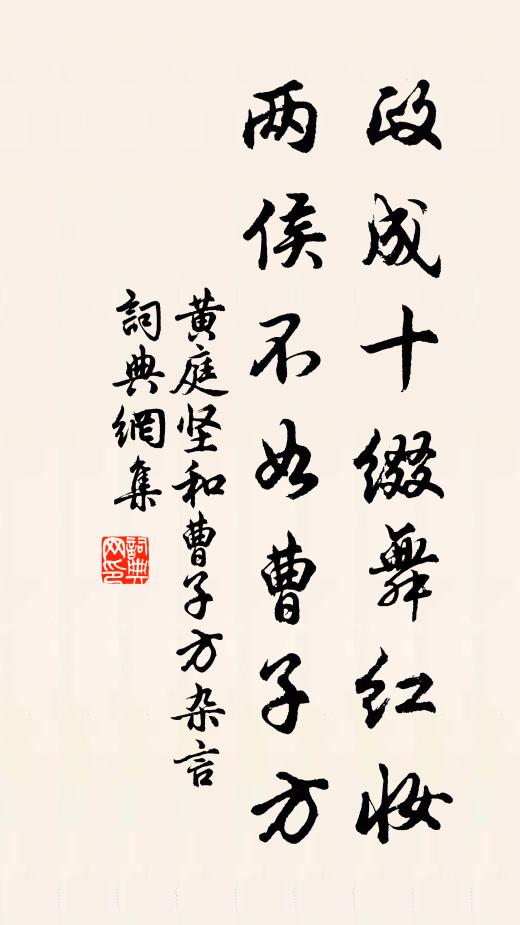 政成十缀舞红妆
两侯不如曹子方
黄庭坚和曹子方杂言
詞典網集
詞典网印